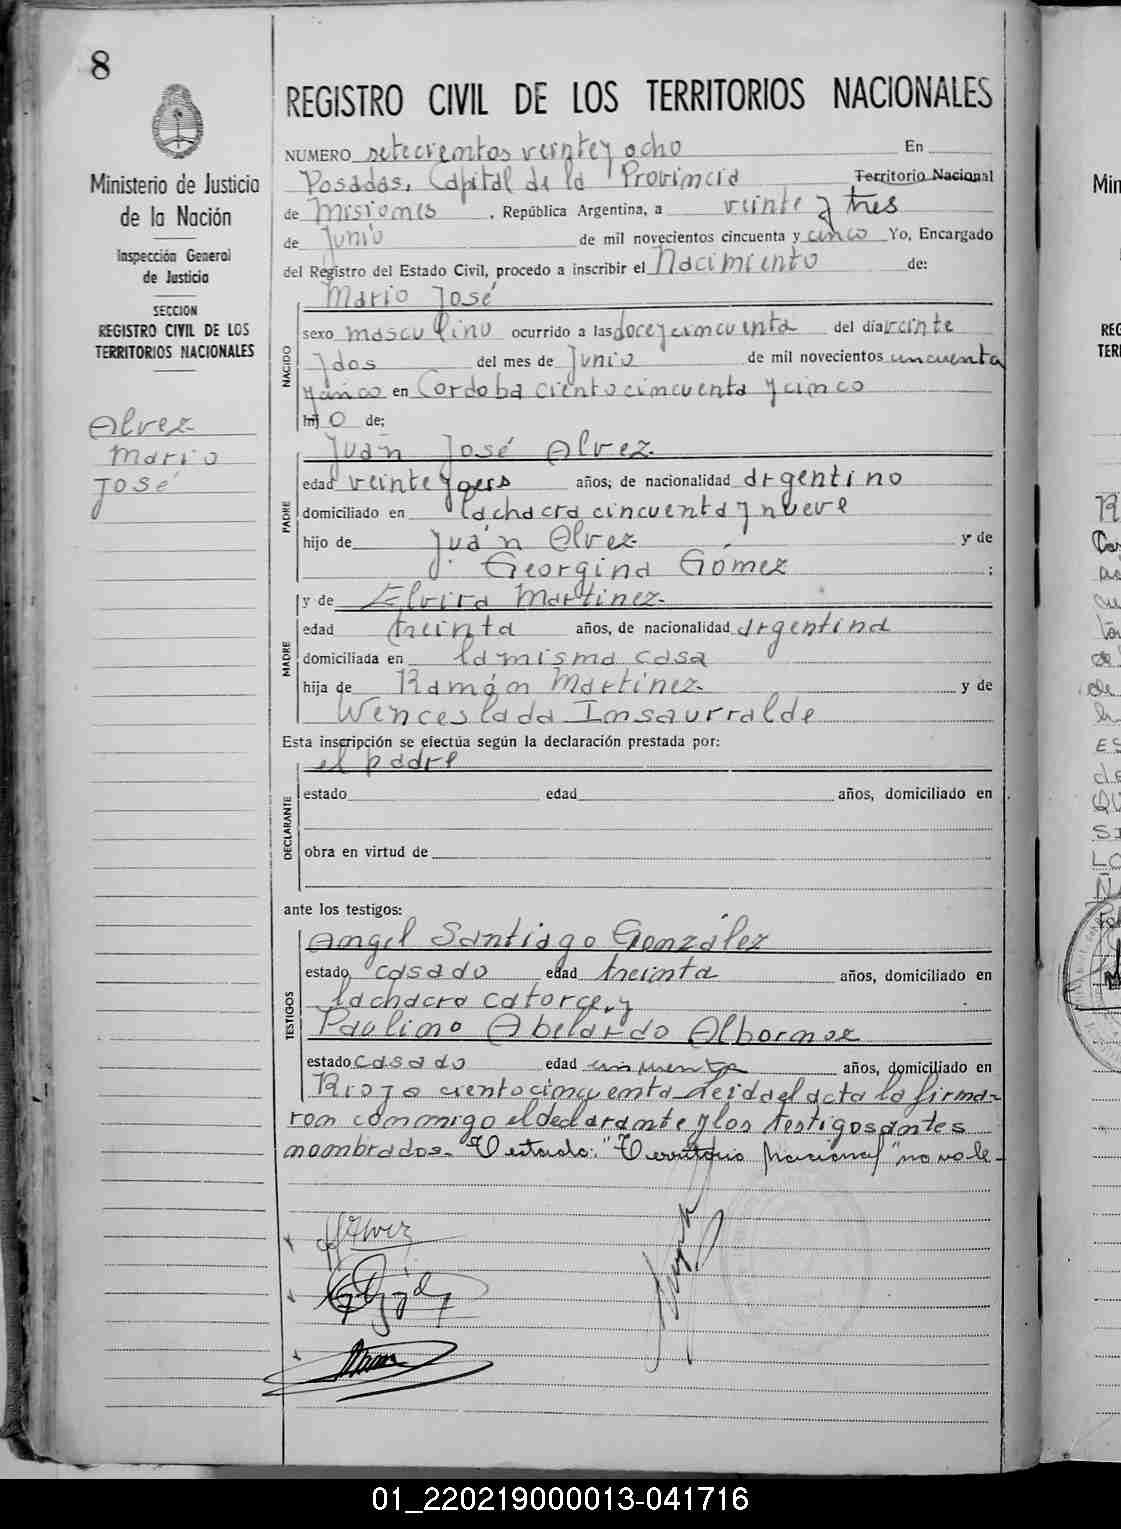 8
Ministerio de Justicia
de la Nación
Inspección General
de Justicia
SECCION
REGISTRO CIVIL DE LOS
TERRITORIOS NACIONALES
Alvez
Mario
José
REGISTRO CIVIL DE LOS TERRITORIOS NACIONALES
NUMERO setecientos veinte y ocho En
Posadas, Capital de la Provincia Territorio Nacional
de Misiones, República Argentina, a veinte y tres
de Junio de mil novecientos cincuenta y cinco Yo, Encargado
del Registro del Estado Civil, procedo a inscribir el Nacimiento de:
Mario José
NACIDO
sexo masculino ocurrido a las doce y cincuenta del día veinte
y dos del mes de Junio de mil novecientos cincuenta
y cinco en Cordoba ciento cincuenta y cinco
hij o de:
Juan José Alvez.
PADRE
edad veinte y años; de nacionalidad argentino
domiciliado en la chacra cincuenta y nueve
hijo de Juan Alvez y de
Georgina Gómez ;
y de Elvira Martinez.
MADRE
edad treinta años, de nacionalidad argentina
domiciliada en la misma casa
hija de Ramón Martinez. y de
Wenceslada Insaurralde
Esta inscripción se efectúa según la declaración prestada por:
el padre
DECLARANTE
estado edad años, domiciliado en
obra en virtud de
ante los testigos:
TESTIGOS
Angel Santiago González
estado casado edad treinta años, domiciliado en
la chacra catorce, y
Paulino Abelardo Albornoz
estado casado edad cincuenta años, domiciliado en
Rioja ciento cincuenta leida el acta la firma-
ron conmigo el declarante y los testigos antes
nombrados.- Testado: "Territorio Nacional" no vale-
JJAlvez
Min
REG
TERI
01_220219000013-041716